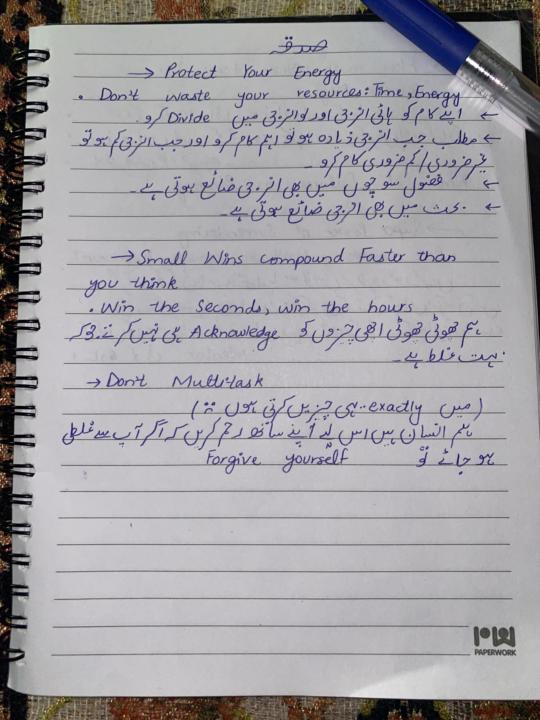 صدقہ
→ Protect Your Energy
• Don't waste your resources: Time, Energy
← اپنے کام کو ہائی انرجی اور لو انرجی میں Divide کرو۔
← مطلب جب انرجی زیادہ ہو تو اہم کام کرو اور جب انرجی کم ہو تو
غیر ضروری / کم ضروری کام کرو۔
← فضول سوچوں میں بھی انرجی ضائع ہوتی ہے۔
← بحث میں بھی انرجی ضائع ہوتی ہے۔
→ Small Wins compound Faster than
you think
• Win the Seconds, win the hours
ہم چھوٹی چھوٹی اچھی چیزوں کو Acknowledge ہی نہیں کرتے جو کہ
بہت غلط ہے۔
→ Don't Multitask
(میں exactly یہی چیزیں کرتی ہوں)
ہم انسان ہیں اس لیے اپنے ساتھ رحم کریں کہ اگر آپ سے غلطی
ہو جائے تو Forgive yourself
PAPERWORK